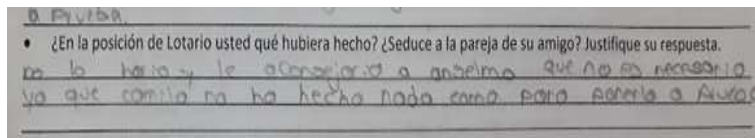 a Prueba.
• ¿En la posición de Lotario usted qué hubiera hecho? ¿Seduce a la pareja de su amigo? Justifique su respuesta.
no lo haria y le aconsejaria a anselmo que no es necesario
ya que camila no ha hecho nada como para ponerla a Prueba